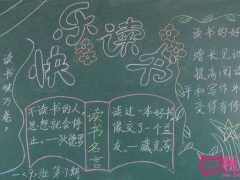 快乐读书
读书破万卷，
不读书的人
思想就会停
止。
读书名言
读过一本好书
像交了一个益
友。—臧克家
读书的好
增长见识
提高阅读
和写作水
交得有修